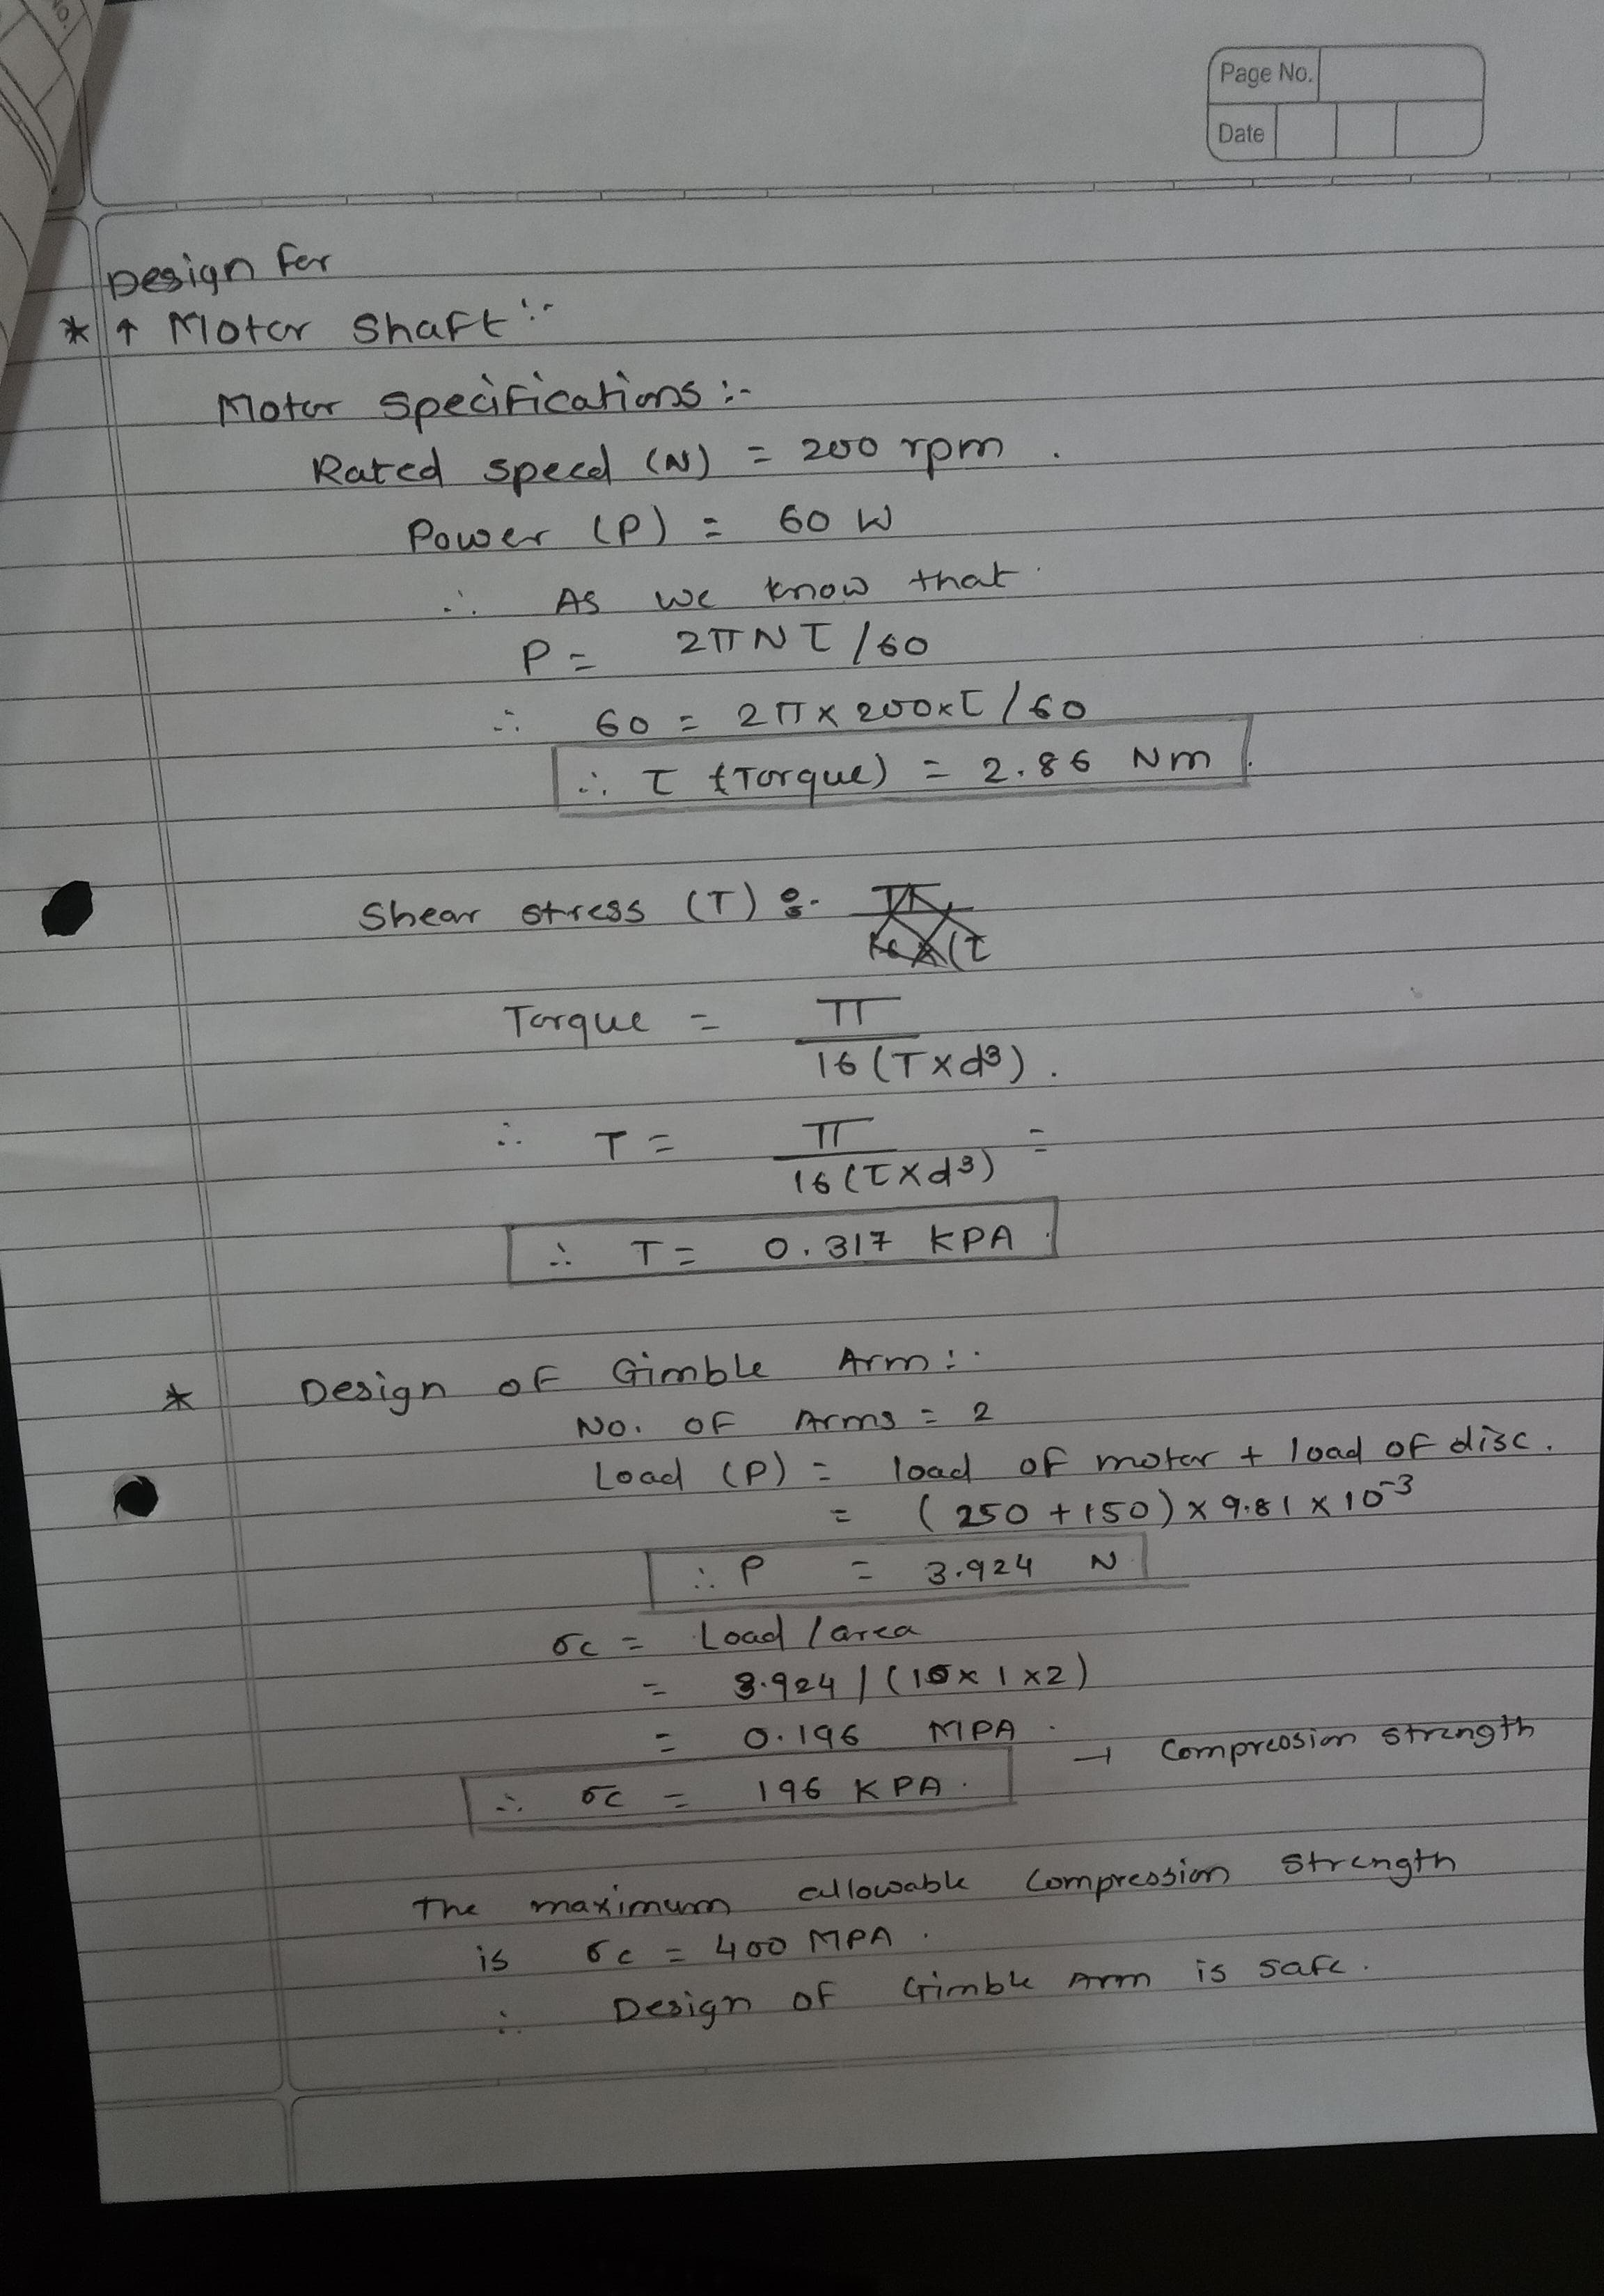 NO.
Page No.
Date
Design For
* ↑ Motor Shaft :-
Motor Specifications :-
Rated speed (N) = 200 rpm .
Power (P) = 60 W
∴ As we know that
P = 2πNτ/60
∴ 60 = 2π×200×τ/60
∴ τ (Torque) = 2.86 Nm
Shear stress (T) :-
Torque = π / 16(T×d³) .
∴ T = π / 16(τ×d³) =
∴ T = 0.317 KPA
* Design of Gimble Arm :-
No. of Arms = 2
Load (P) = load of motor + load of disc.
= (250 + 150) × 9.81 × 10⁻³
∴ P = 3.924 N
σc = Load / area
= 3.924 / (10 × 1 × 2)
= 0.196 MPA .
∴ σc = 196 KPA . → Compression strength
The maximum allowable compression strength
is σc = 400 MPA .
∴ Design of Gimble Arm is safe .